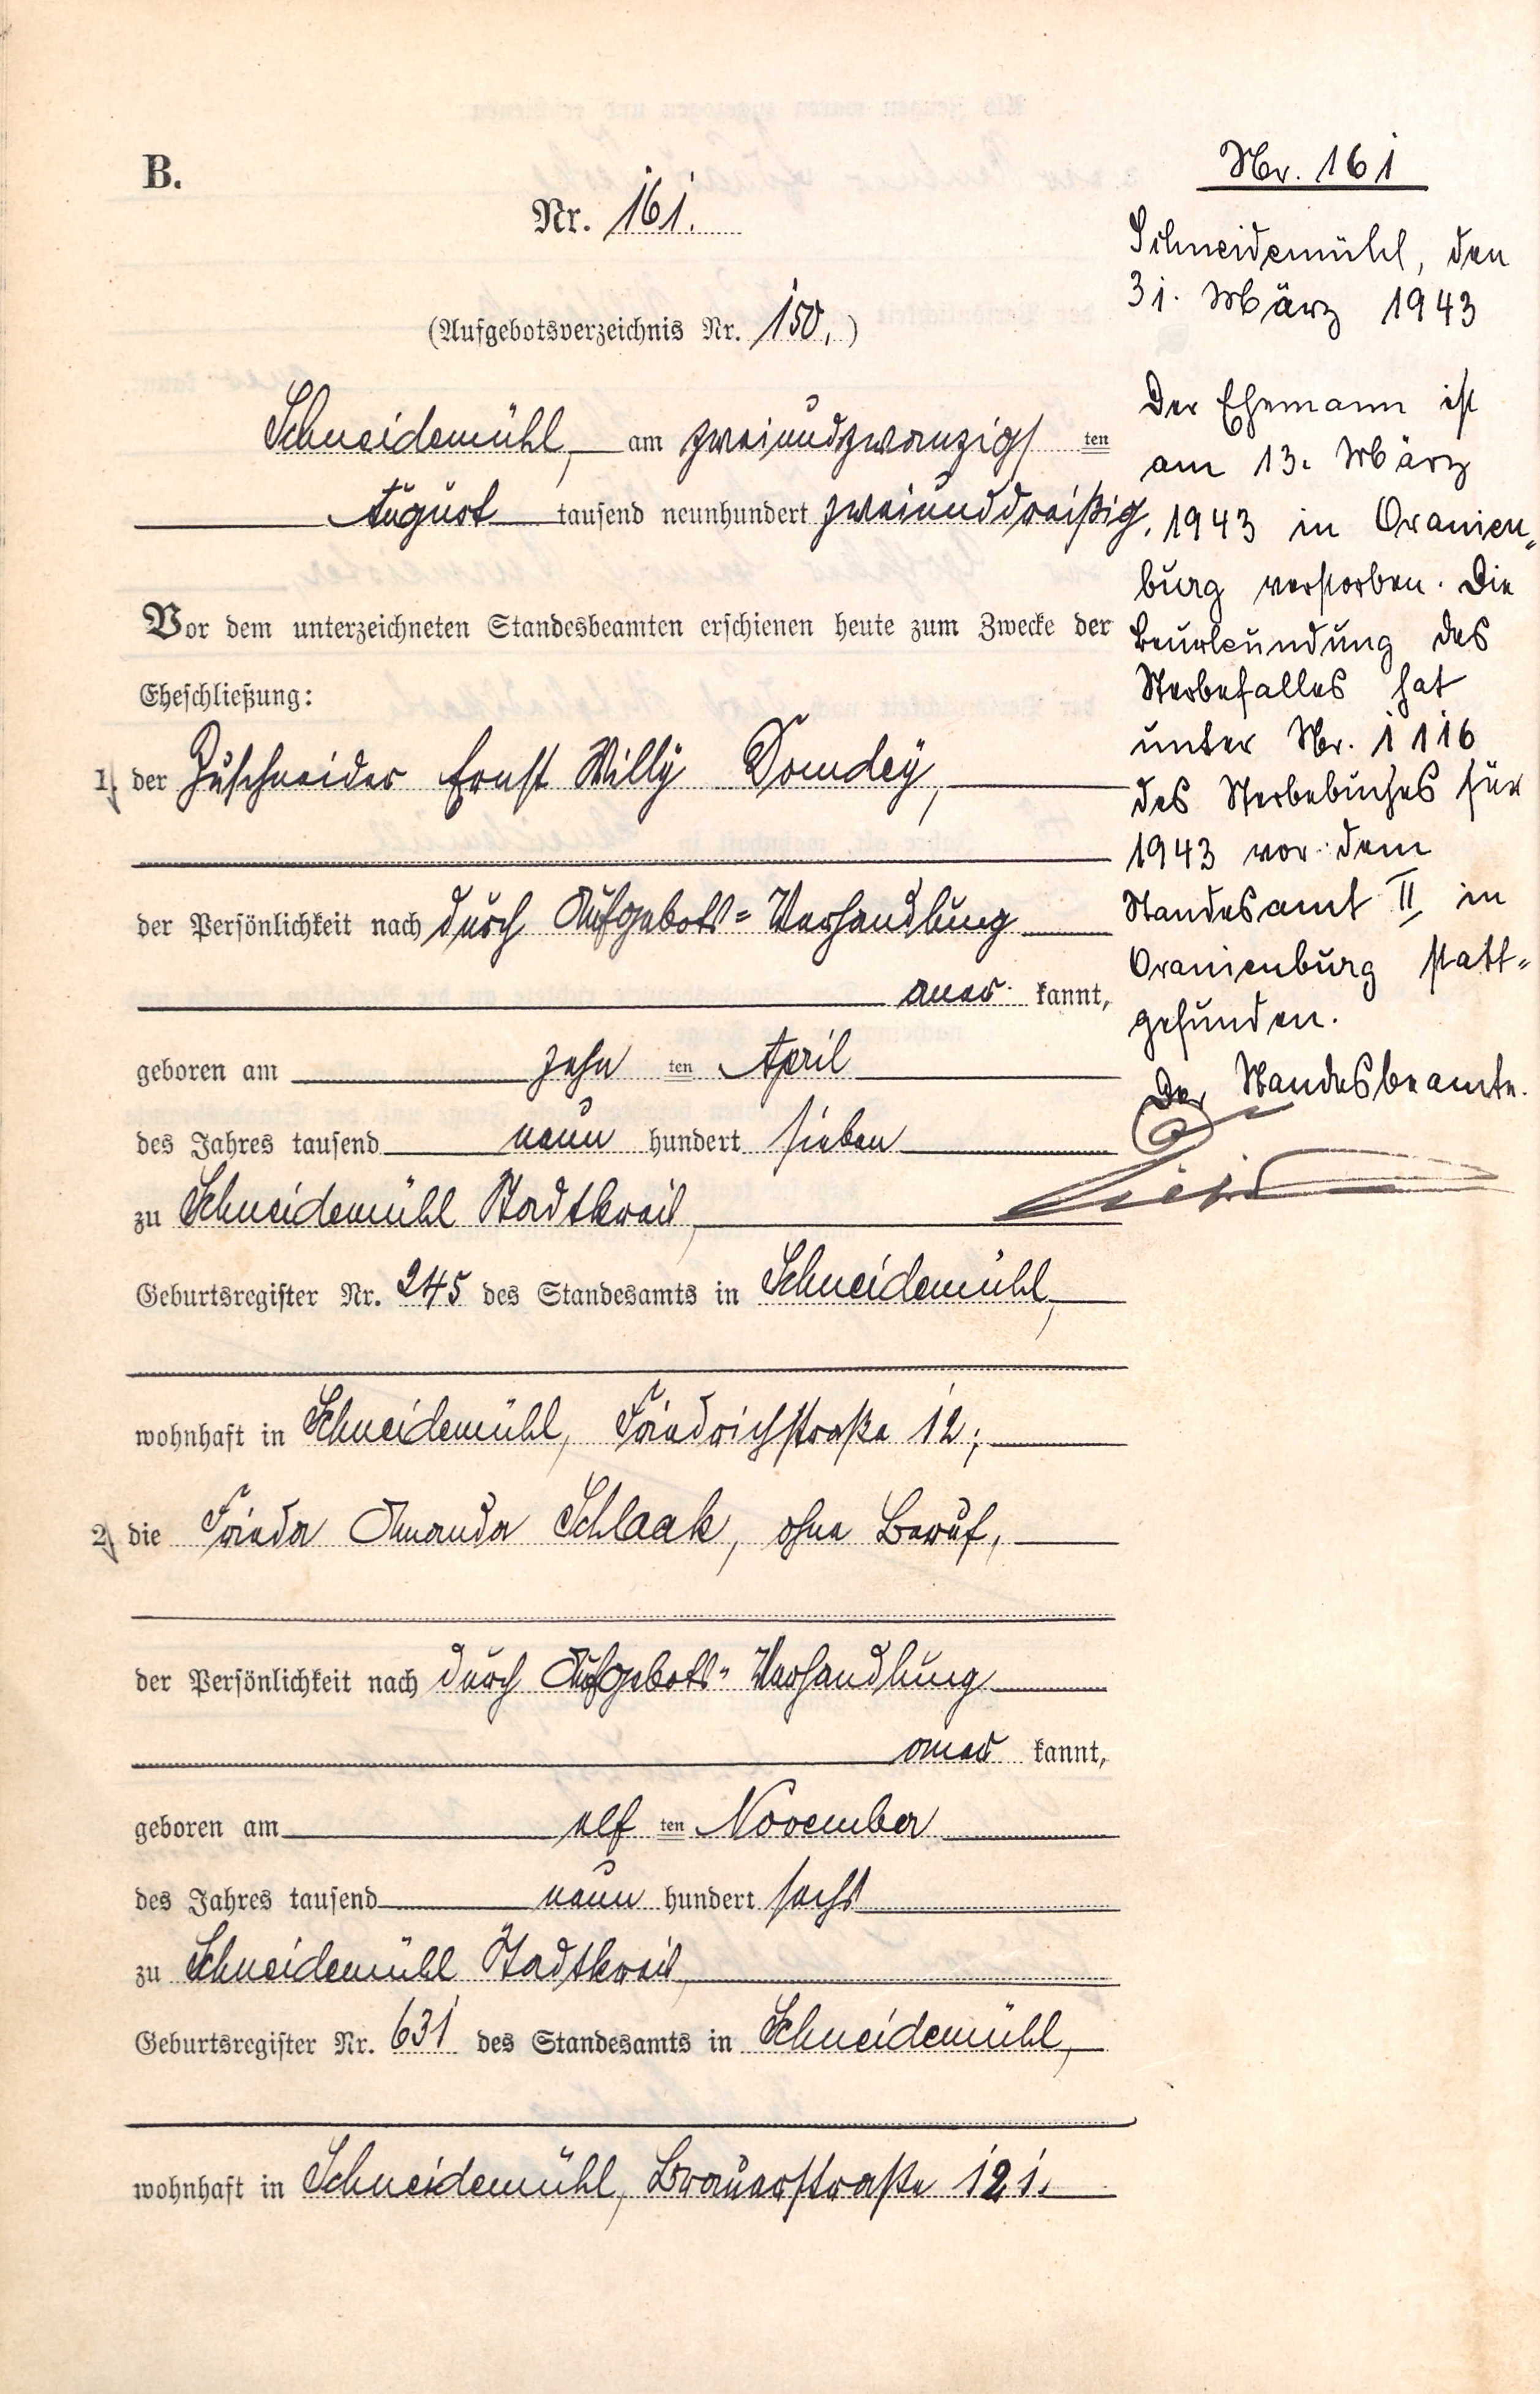 B.
Nr. 161.
(Aufgebotsverzeichnis Nr. 150.)
Schneidemühl, am zweiundzwanzigs ten
August tausend neunhundert zweiunddreißig.
Vor dem unterzeichneten Standesbeamten erschienen heute zum Zwecke der
Eheschließung:
1. der Zuschneider Ernst Willy Domdey,
der Persönlichkeit nach durch Aufgebots=Verhandlung
aner kannt,
geboren am zehn ten April
des Jahres tausend neun hundert sieben
zu Schneidemühl Stadtkreis,
Geburtsregister Nr. 245 des Standesamts in Schneidemühl,
wohnhaft in Schneidemühl, Friedrichstraße 12;
2. die Frieda Amanda Schlaak, ohne Beruf,
der Persönlichkeit nach durch Aufgebots=Verhandlung
aner kannt,
geboren am elf ten November
des Jahres tausend neun hundert sechs
zu Schneidemühl Stadtkreis,
Geburtsregister Nr. 631 des Standesamts in Schneidemühl,
wohnhaft in Schneidemühl, Brauerstraße 121.
Nr. 161
Schneidemühl, den
31. März 1943
Der Ehemann ist
am 13. März
1943 in Oranien=
burg verstorben. Die
Beurkundung des
Sterbefalles hat
unter Nr. 1116
des Sterbebuches für
1943 vor dem
Standesamt II in
Oranienburg statt=
gefunden.
Der Standesbeamte.